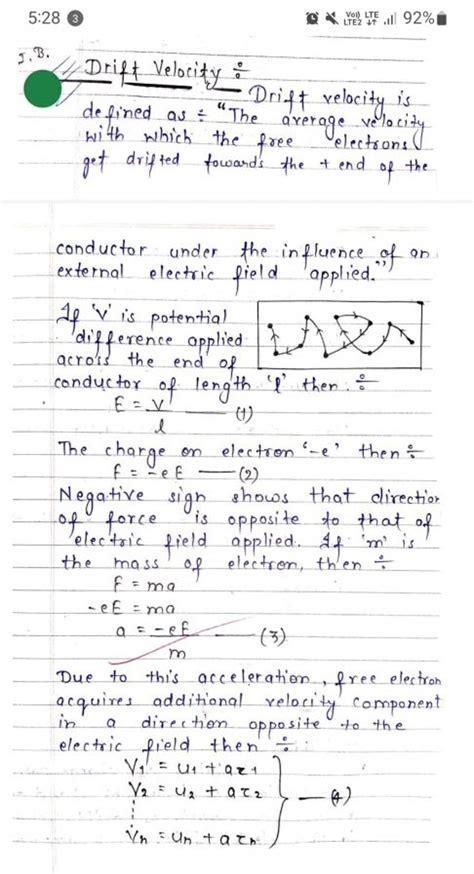 5:28 3 Vo) LTE LTE2 92%
I.B.
Drift Velocity ÷
Drift velocity is
defined as ÷ "The average velocity
with which the free electrons
get drifted towards the + end of the
conductor under the influence of an
external electric field applied."
If 'v' is potential
difference applied
across the end of
conductor of length 'l' then ÷
E = V/l — (1)
The charge on electron '-e' then ÷
F = -eE — (2)
Negative sign shows that direction
of force is opposite to that of
electric field applied. If 'm' is
the mass of electron, then ÷
F = ma
-eE = ma
a = -eE/m — (3)
Due to this acceleration, free electron
acquires additional velocity component
in a direction opposite to the
electric field then ÷
V1 = u1 + aτ1
V2 = u2 + aτ2 — (4)
Vn = un + aτn